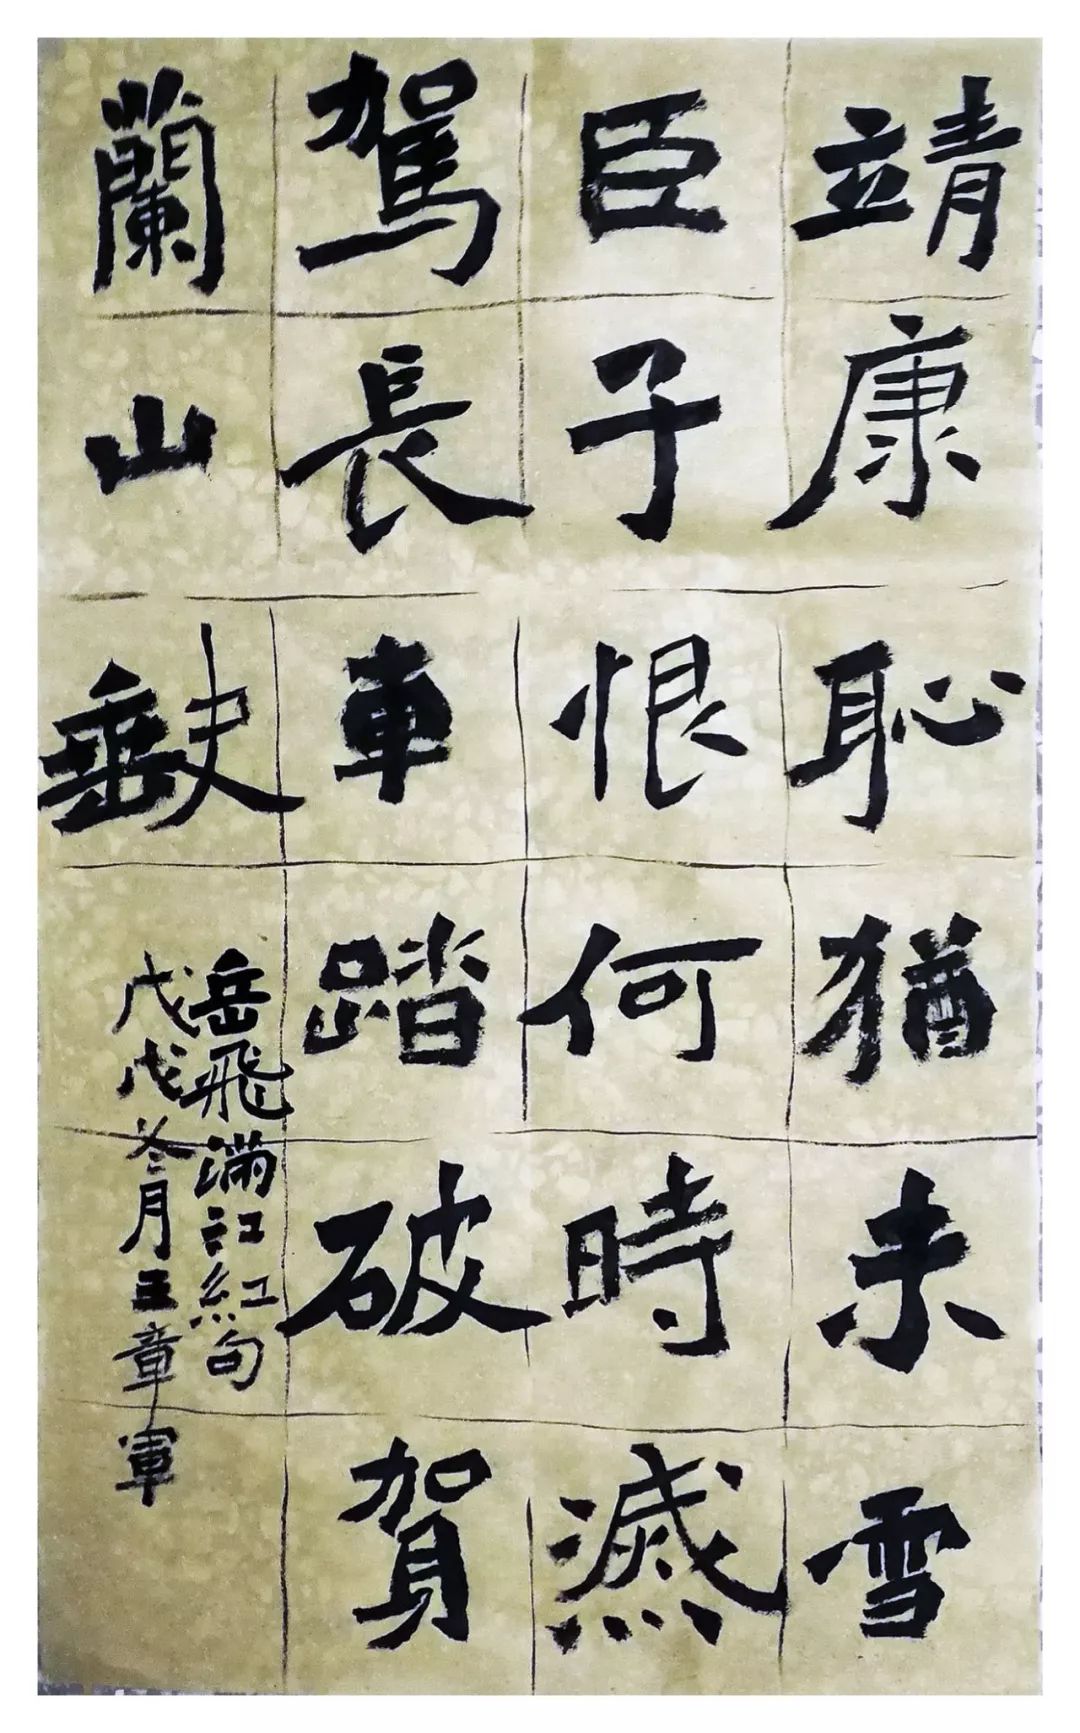 靖康恥猶未雪
臣子恨何時滅
駕長車踏破賀
蘭山缺
岳飛滿江紅句
戊戌冬月王章軍